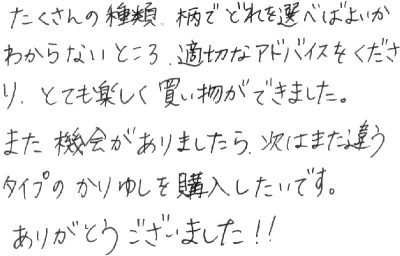 たくさんの種類、柄でどれを選べばよいか
わからないところ、適切なアドバイスをくださ
り、とても楽しく買い物ができました。
また機会がありましたら、次はまた違う
タイプのかりゆしを購入したいです。
ありがとうございました!!